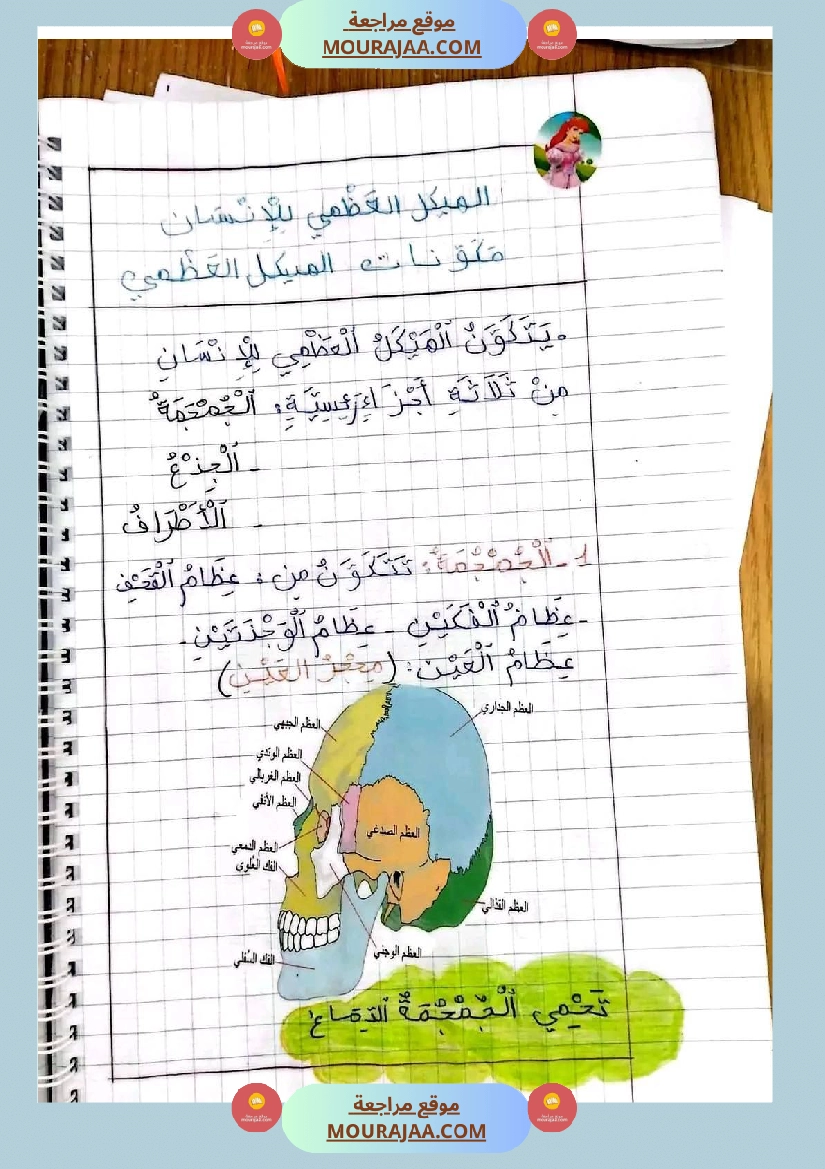 موقع مراجعة
MOURAJAA.COM
الهيكل العَظْمِي لِلْإِنْسَان
مُكَوِّنَات الهيكل العَظْمِي
. يَتَكَوَّنُ اَلْهَيْكَلُ اَلْعَظْمِي لِلْإِنْسَانِ
مِنْ ثَلَاثَةِ أَجْزَاءٍ رَئِيسِيَّةٍ: اَلْجُمْجُمَةُ
- اَلْجِذْعُ
- اَلْأَطْرَافُ
1 - اَلْجُمْجُمَةُ: تَتَكَوَّنُ مِن : عِظَامُ اَلْقَحْفِ
- عِظَامُ اَلْفَكَّيْنِ - عِظَامُ اَلْوَجْنَتَيْنِ -
عِظَامُ اَلْعَيْن: (مِحْجَرُ العَيْنِ)
العظم الجداري
العظم الجبهي
العظم الوتدي
العظم الغربالي
العظم الأنفي
العظم الصدغي
العظم الدمعي
الفك العُلوي
العظم القذالي
العظم الوجني
الفك السُفلي
تَحْمِي اَلْجُمْجُمَةُ اَلدِّمَاغ
موقع مراجعة
MOURAJAA.COM